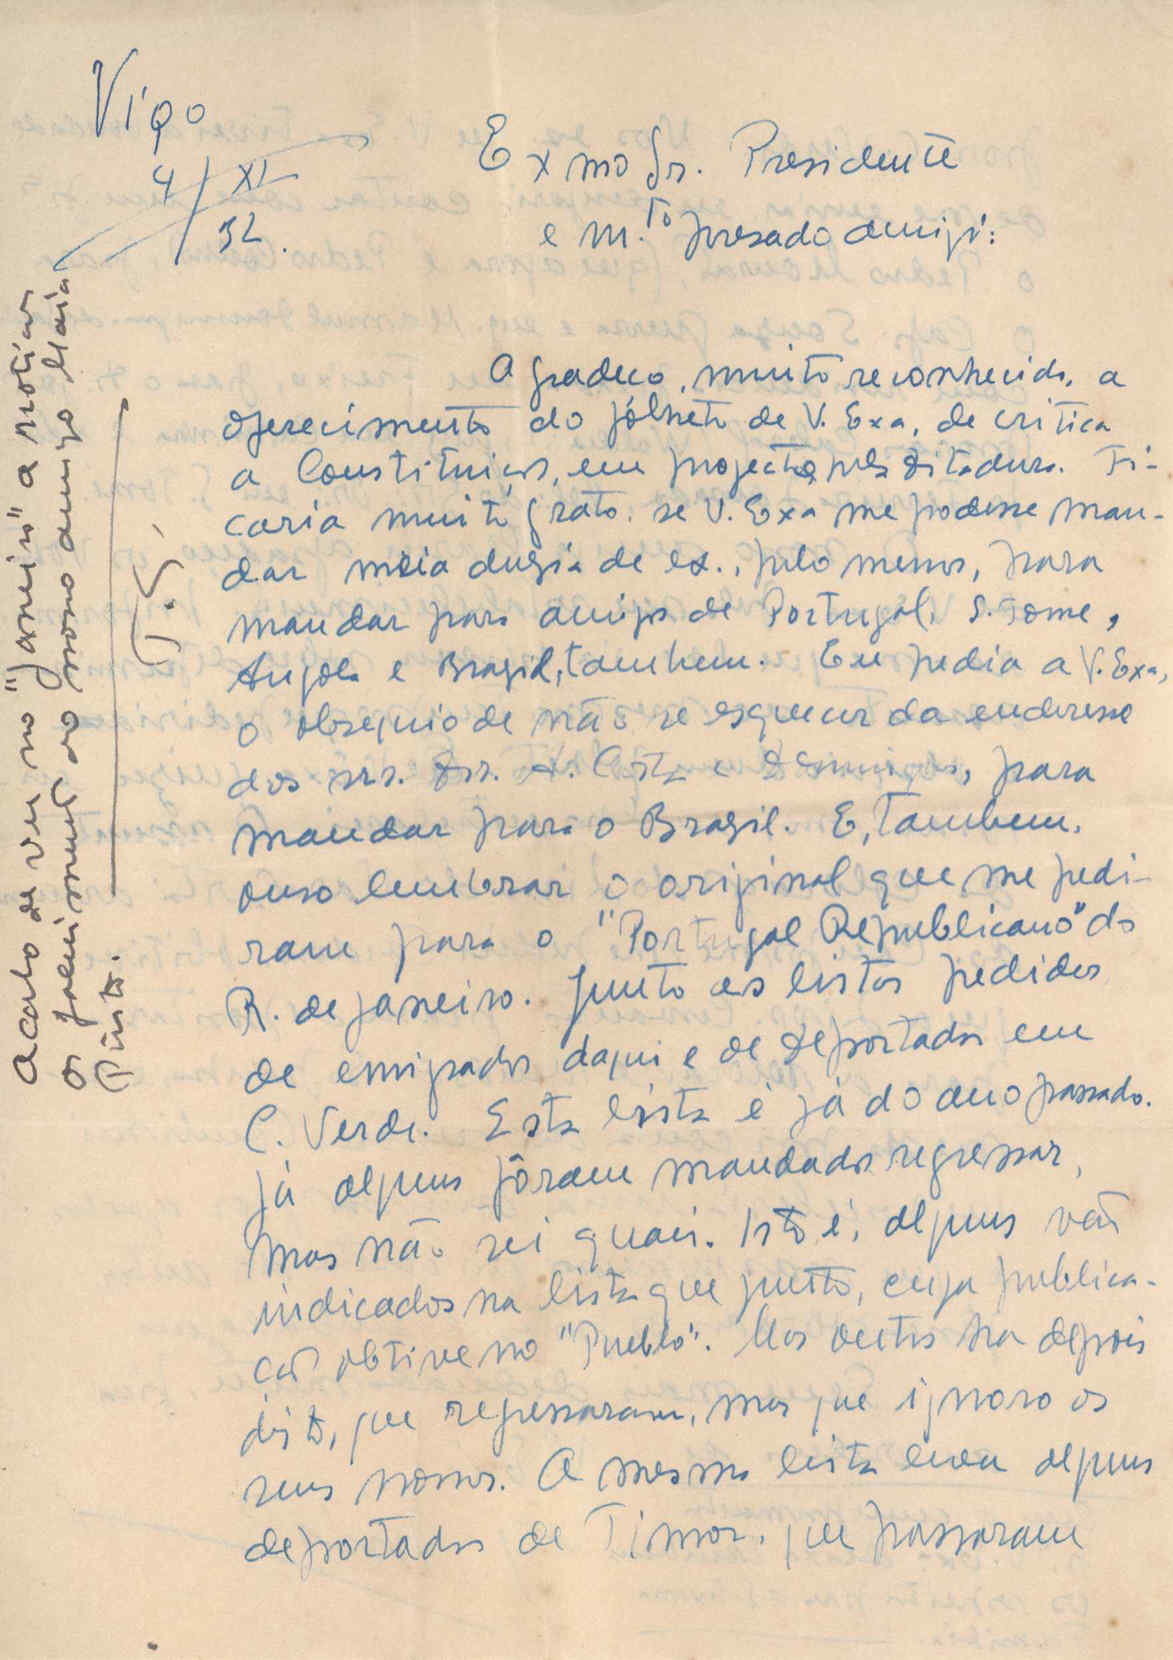 Vigo
4/XI
32.
Exmo Sr. Presidente
e m.to presado amigo:
Agradeço, muito reconhecido, a
oferecimento do folheto de V. Exa, de critica
a Constituição, em projecto, pela ditadura. Fi-
caria muito grato, se V. Exa me podesse man-
dar meia duzia de ex., pelo menos, para
mandar para amigos de Portugal, S. Tome,
Angola e Brazil, tambem. Eu pedia a V. Exa,
o obsequio de não se esquecer da enderesse
dos srs. drs. A. Costa e Domingos, para
mandar para o Brazil. E, tambem,
ouso lembrar o original que me pedi-
ram para o "Portugal Republicano" do
R. de Janeiro. Junto as listas pedidas
de emigrados daqui e de deportados em
C. Verde. Esta lista é já do ano passado.
Já alguns fôram mandados regressar,
mas não sei quais. Isto é, alguns vão
indicados na lista que junto, cuja publica-
ção obtive no "Pueblo". Mas outros ha depois
disto, que regressaram, mas que ignoro os
seus nomes. A mesma lista leva alguns
deportados de Timor, que passaram
T.S.
Acabo de ver no "Janeiro" a noticia
do falecimento do nosso amigo Maia
Pinto.